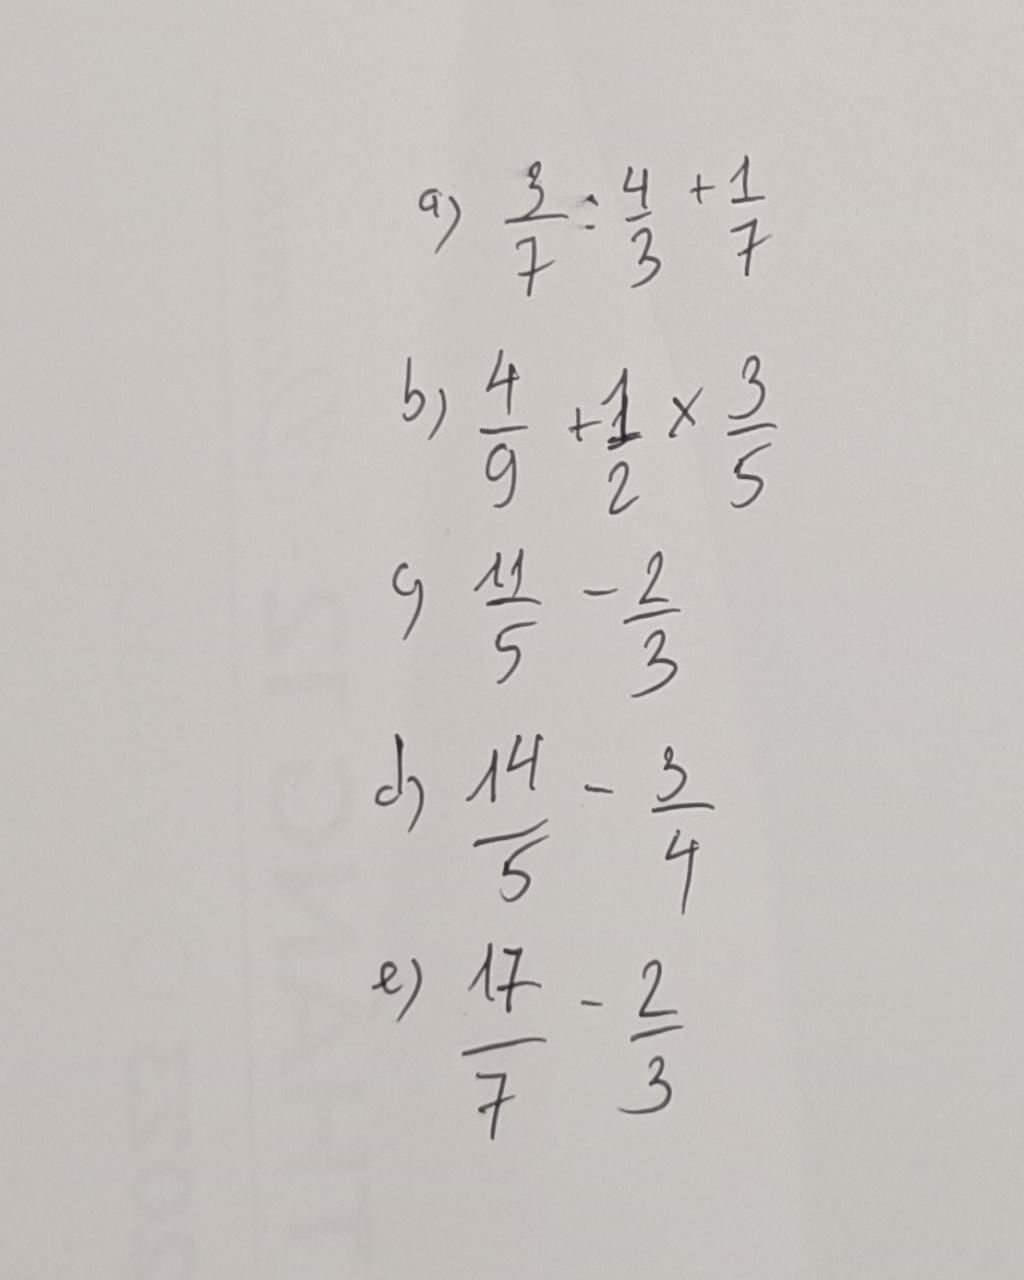 a) 3/7 : 4/3 + 1/7
b) 4/9 + 1/2 x 3/5
c) 11/5 - 2/3
d) 14/5 - 3/4
e) 17/7 - 2/3